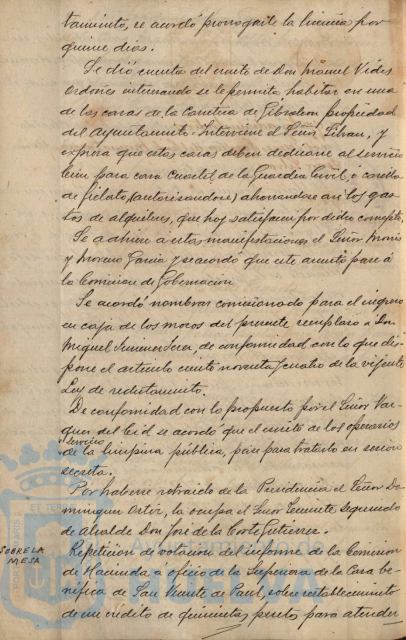 tamiento, se acordó prorrogarle la licencia por
quince dias.
Se dió cuenta del escrito de Don Manuel Vides
Ordoñez interesando se le permita habitar en una
de las casas de la Carretera de Gibraleon propiedad
del Ayuntamiento. Interviene el Señor Silvan, y
expresa que estas casas deben dedicarse al servicio
bien para casa Cuartel de la Guardia Civil, o casilla
de fielato, (autorisandose) ahorrandose asi los gas-
tos de alquileres, que hoy satisfacen por dicho concepto.
Se adhiere a estas manifestaciones el Señor
y Moreno Garcia y se acordó que este asunto pase á
la Comision de Gobernacion
Se acordó nombrar comisionado para el ingreso
en caja de los mozos del presente reemplazo á Don
Miguel Jimenez, de conformidad con lo que dis-
pone el artículo ciento noventa y cuatro de la vijente
Ley de reclutamiento.
De conformidad con lo propuesto por el Señor Vaz-
quez del Cid se acordó que el escrito de los operarios
servicio
de la limpieza pública, pase para tratarlo en sesion
secreta.
Por haberse retraido de la Presidencia el Señor Do-
minguez Ortiz, la ocupa el Señor Teniente Segundo
de alcalde Don José de la Corte Gutierrez.
SOBRE LA
MESA
Repeticion de votacion del informe de la Comision
de Hacienda á oficio de la Superiora de la Casa be-
néfica de San Vicente de Paul, sobre restablecimiento
de un crédito de quinientas pesetas para atender